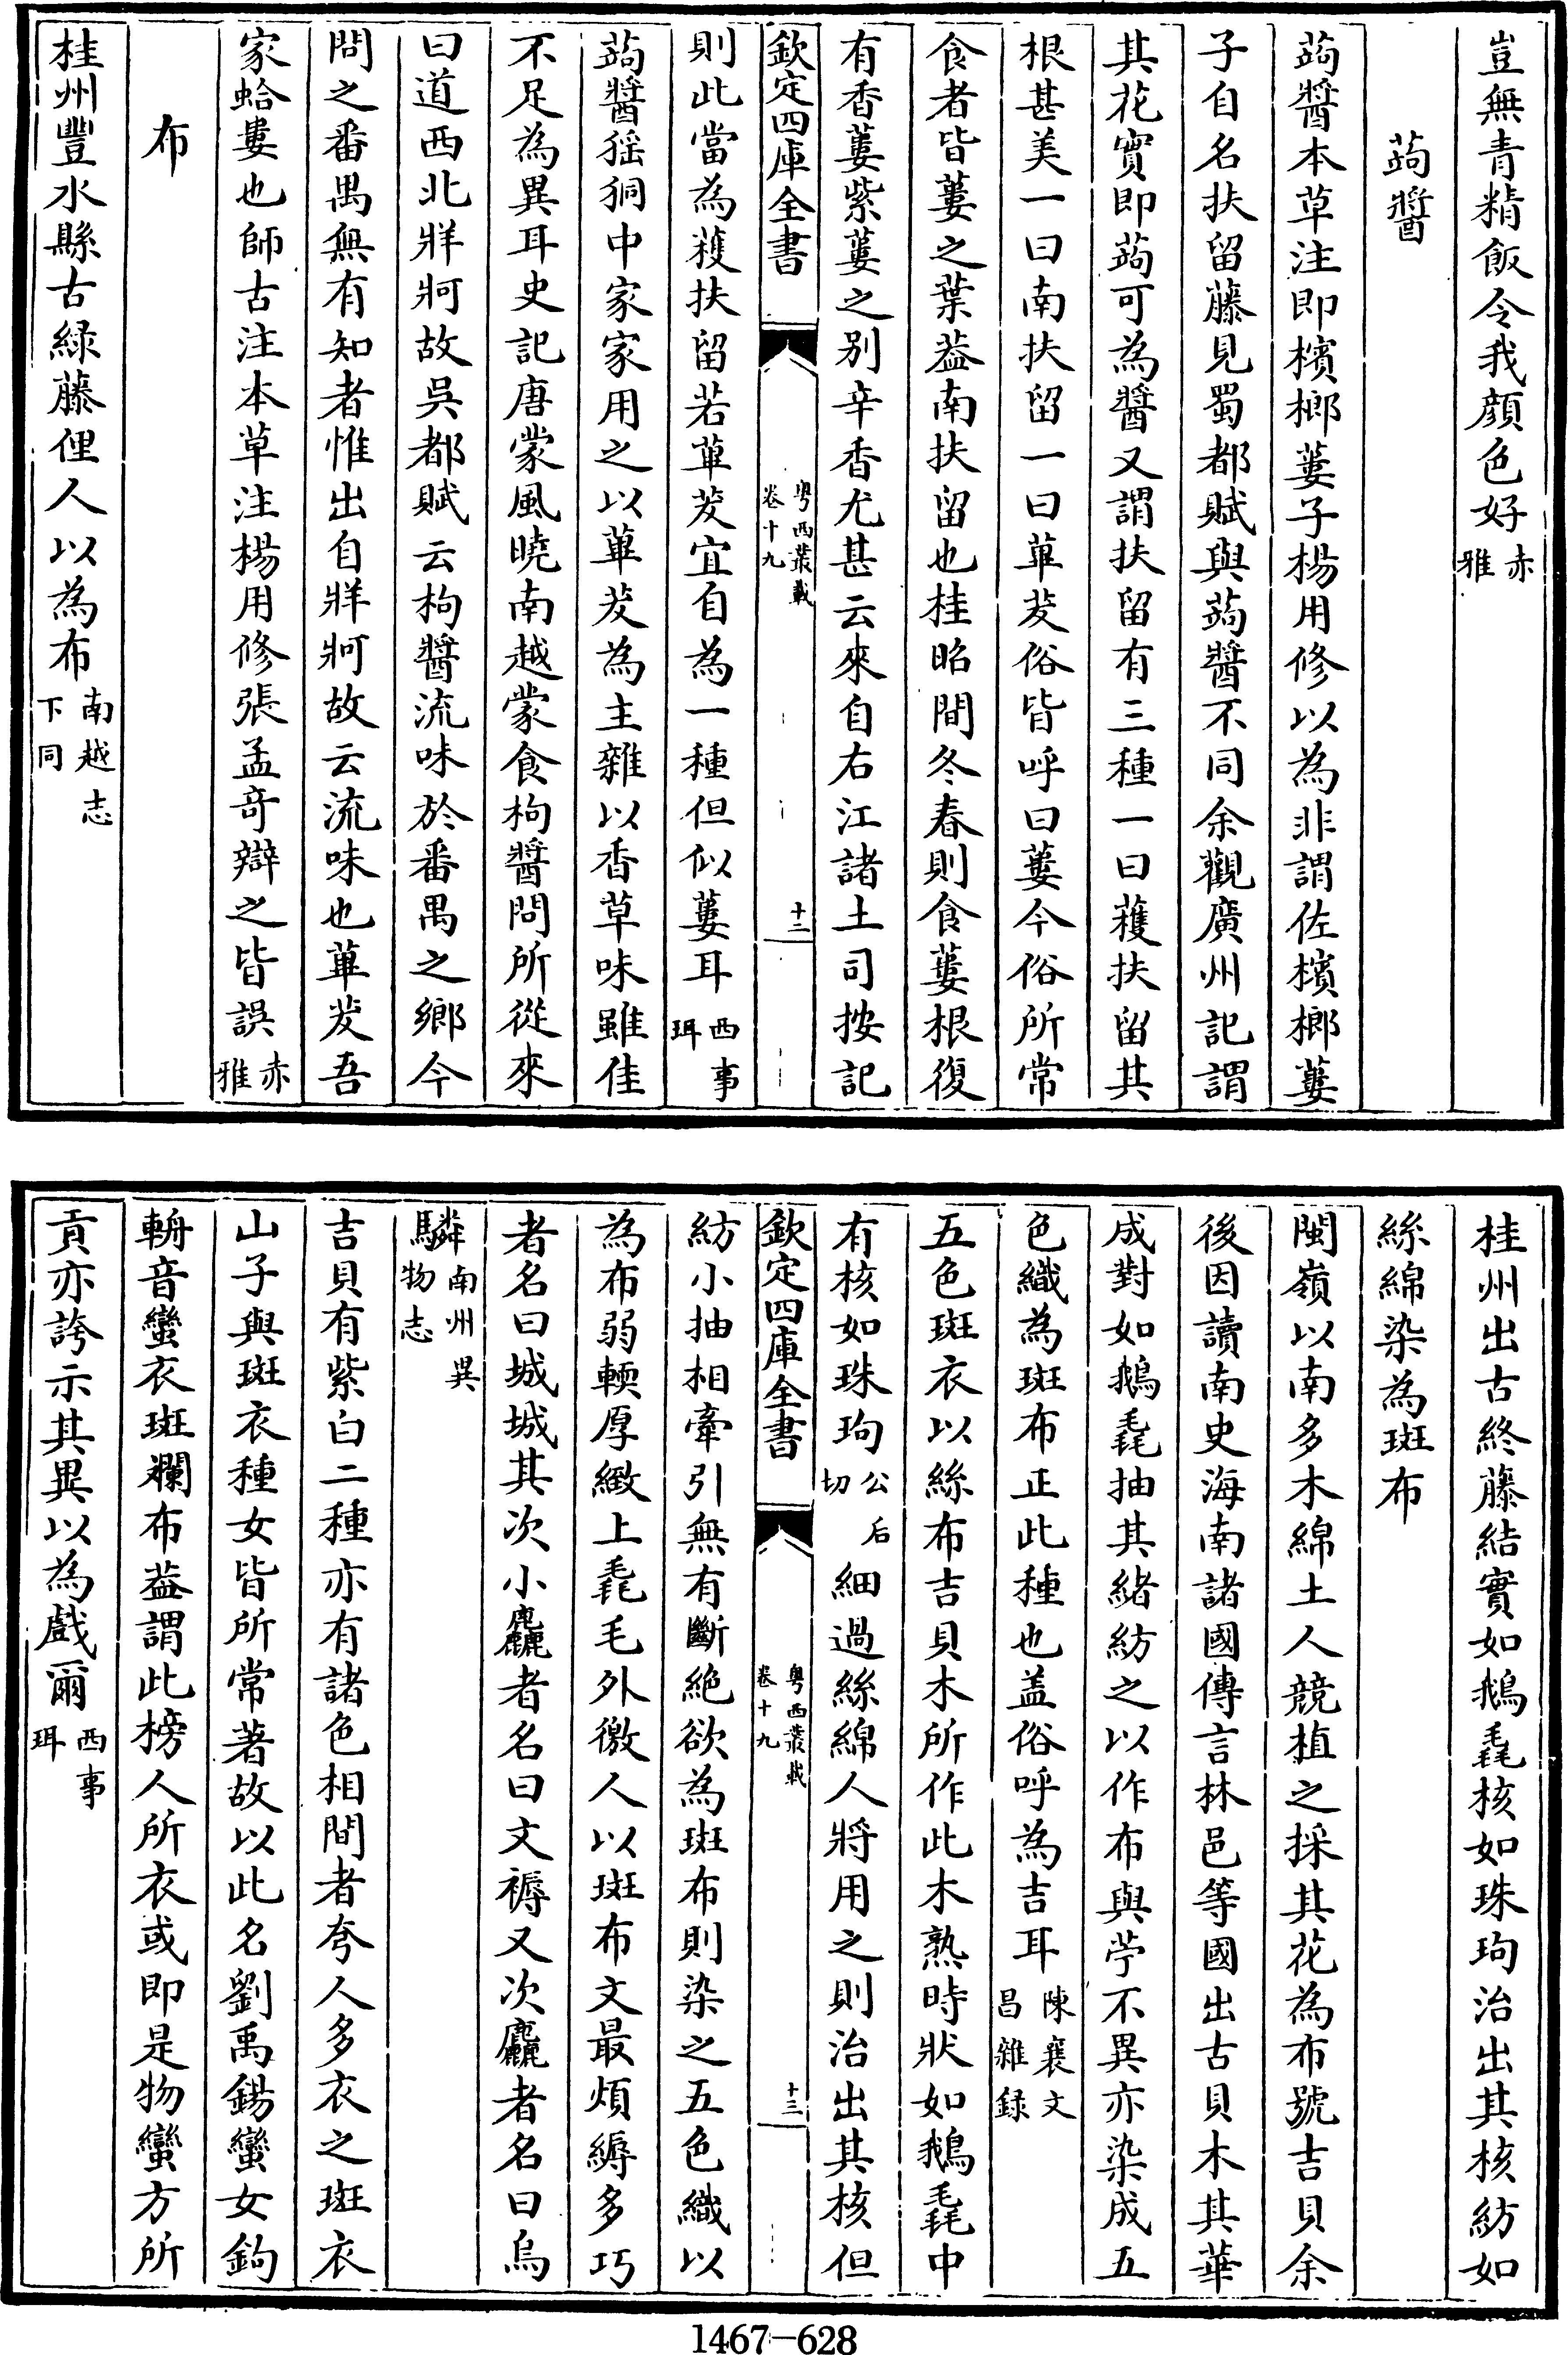 豈無青精飯令我顔色好赤雅
蒟醬
蒟醬本草注即檳榔蔞子楊用修以為非謂佐檳榔蔞
子自名扶留藤見蜀都賦與蒟醬不同余觀廣州記謂
其花實即蒟可為醬又謂扶留有三種一曰䕶扶留其
根甚美一曰南扶留一曰蓽茇俗皆呼曰蔞今俗所常
食者皆蔞之葉葢南扶留也桂昭間冬春則食蔞根復
有香蔞紫蔞之别辛香尤甚云來自右江諸土司按記
欽定四庫全書
粤西叢載
卷十九
十二
則此當為䕶扶留若蓽茇宜自為一種但似蔞耳西事珥
蒟醬猺狪中家家用之以蓽茇為主雜以香草味雖佳
不足為異耳史記唐蒙風曉南越蒙食枸醬問所從來
曰道西北牂牁故吳都賦云枸醬流味於番禺之鄉今
問之番禺無有知者惟出自牂牁故云流味也蓽茇吾
家蛤蔞也師古注本草注楊用修張孟竒辯之皆誤赤雅
布
桂州豐水縣古緑藤俚人以為布南越志下同
桂州出古終藤結實如鵝毳核如珠珣治出其核紡如
絲綿染為斑布
閩嶺以南多木綿土人競植之採其花為布號吉貝余
後因讀南史海南諸國傳言林邑等國出古貝木其華
成對如鵝毳抽其緒紡之以作布與苧不異亦染成五
色織為斑布正此種也盖俗呼為吉耳陳襄文昌雜録
五色斑衣以絲布吉貝木所作此木熟時狀如鵝毳中
有核如珠珣公后切細過絲綿人將用之則治出其核但
欽定四庫全書
粤西叢載
卷十九
十三
紡小抽相牽引無有斷絶欲為斑布則染之五色織以
為布弱輭厚緻上毳毛外徼人以斑布文最煩縟多巧
者名曰城城其次小麤者名曰文褥又次麤者名曰烏
驎南州異物志
吉貝有紫白二種亦有諸色相間者夸人多衣之斑衣
山子與斑衣種女皆所常著故以此名劉禹錫蠻女鉤
輈音蠻衣斑斕布葢謂此榜人所衣或即是物蠻方所
貢亦誇示其異以為戲爾西事珥
1467-628